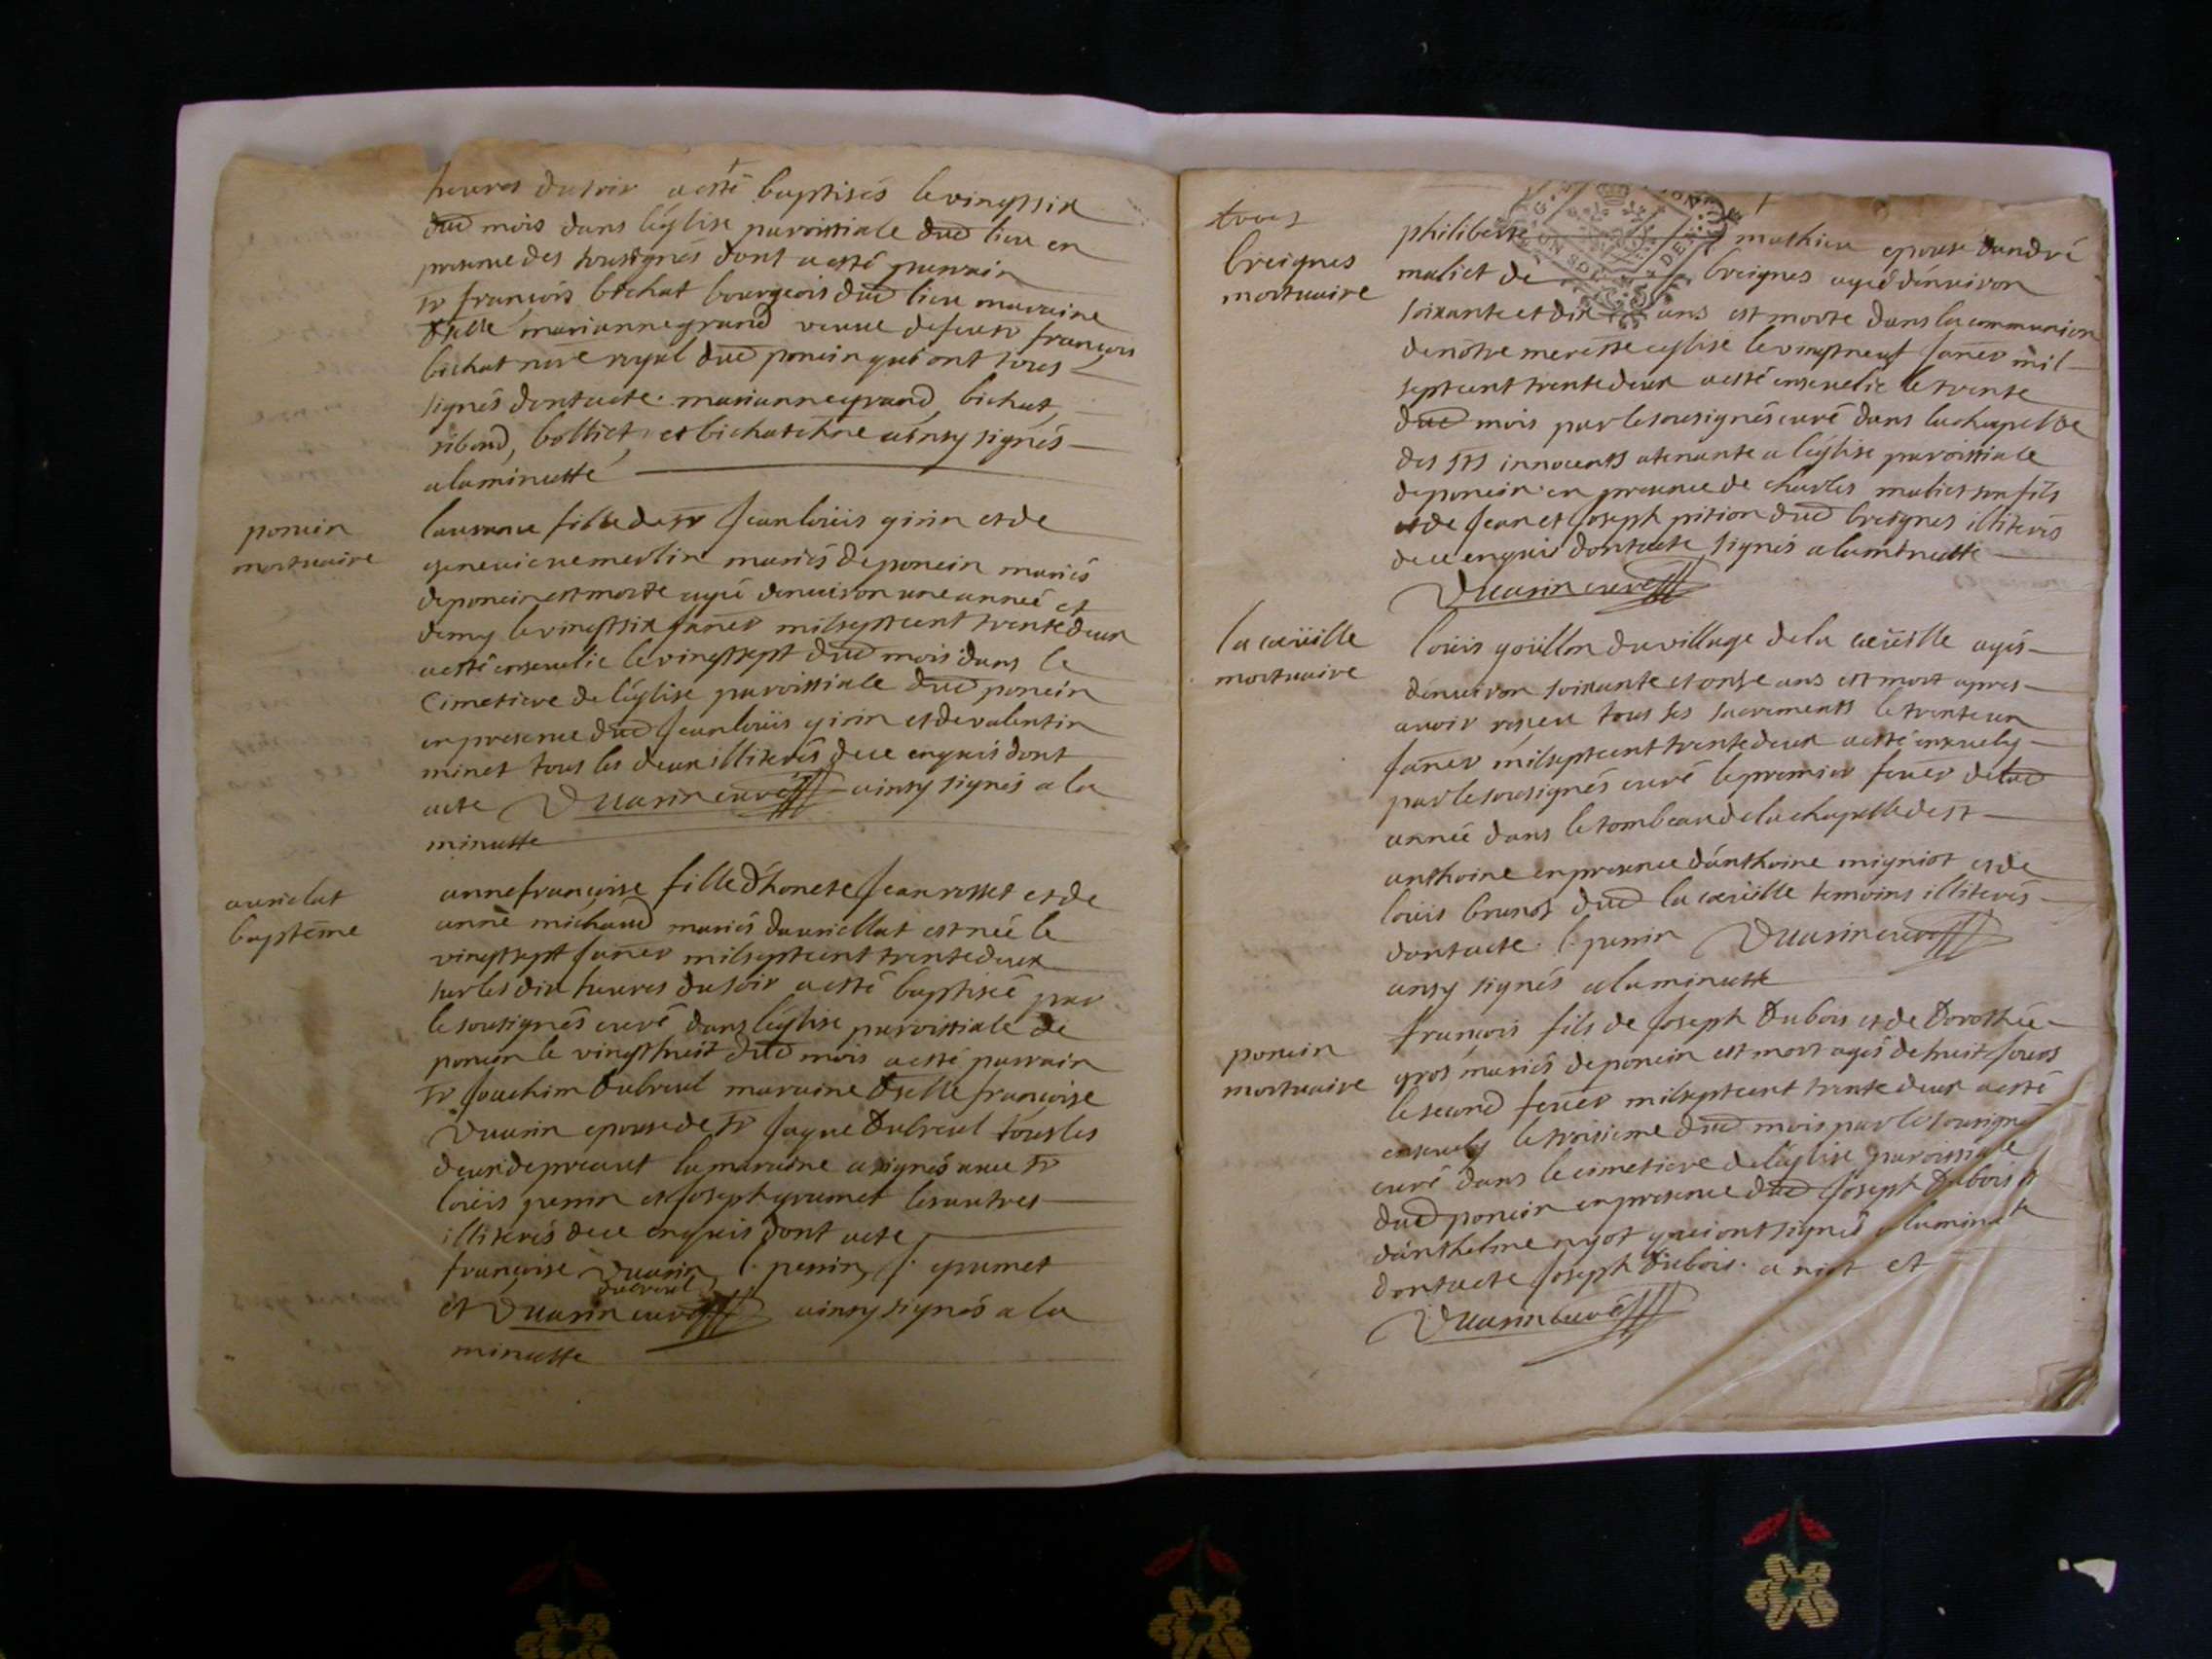 heures du soir a esté baptisés le vingtsix
dud mois dans léglise paroissiale dud lieu en
presence des sousignés dont a esté parrain
sr françois bichat bourgeois dud lieu maraine
dselle marianne grand veuve de feu sr françois
bichat nore royal dud poncin qui ont tous
signés dont acte. marianne grand, bichat,
ribaud, bolliet, et bichat chne ainsy signés
a la minutte
poncin
mortuaire
laurance fille de sr jean loüis girin et de
genevieve merlin mariés de poncin mariés
de poncin est morte agée denviron une anneé et
demy le vingtsix janer mil sept cent trente deux
a esté ensevelie le vingtsept dud mois dans le
cimetiere de léglise paroissiale dud poncin
en presence dud jean loüis girin et de valentin
minet tous les deux illiterés de ce enquis dont
acte Duarin curé ainsy signés a la
minutte
avrielat
baptême
anne françoise fille dhonete jean rosset et de
anne michaud mariés davriellat est née le
vingtsept janer mil sept cent trente deux
sur les dix heures du soir a esté baptisée par
le sousignés curé dans léglise paroissiale de
poncin le vingthuit dud mois a esté parrain
sr joachim dubreul maraine dselle françoise
Duarin epouse de sr jaque dubreul tous les
deux de preavet la maraine a signés avec sr
loüis perrin et joseph grumet les autres
illiterés de ce enquis dont acte
françoise Duarin l. perrin, j. grumet
dubreul
et Duarin curé ainsy signés a la
minutte
breignes
mortuaire
philiberte mathieu epouse dandré
maliet de breignes agée dénviron
soixante et dix ans est morte dans la communion
de nôtre mere ste eglise le vingtneuf janer mil
sept cent trente deux a esté ensevelie le trente
dud mois par le sousignés curé dans la chapelle
des sts innocents atenante a léglise paroissiale
de poncin en presence de charles maliet son fils
et de jean et joseph pition dud breignes illiterés
de ce enquis dont acte signés a la minutte
Duarin curé
la cœüille
mortuaire
loüis goüllon du village de la cœüille agés
dénviron soixante et onze ans est mort apres
avoir reçeu tous ses sacrements le trente un
janer mil sept cent trente deux a esté ensevely
par le sousignés curé le premier fever de lad
année dans le tombeau de la chapelle de st
anthoine en presence dánthoine migniot et de
loüis brunot dud la cœüille temoins illiterés
dont acte. l. perrin Duarin curé
ansy signés a la minutte
poncin
mortuaire
françois fils de joseph dubois et de dorothée
gros mariés de poncin est mort agés de huit jours
le second fever mil sept cent trente deux a esté
ensevely le troisieme dud mois par le sousigné
curé dans le cimetiere de léglise paroissiale
dud poncin en presence dud joseph dubois et
dánthelme nyot qui ont signés a la minute
dont acte joseph dubois. a niot et
Duarin curé